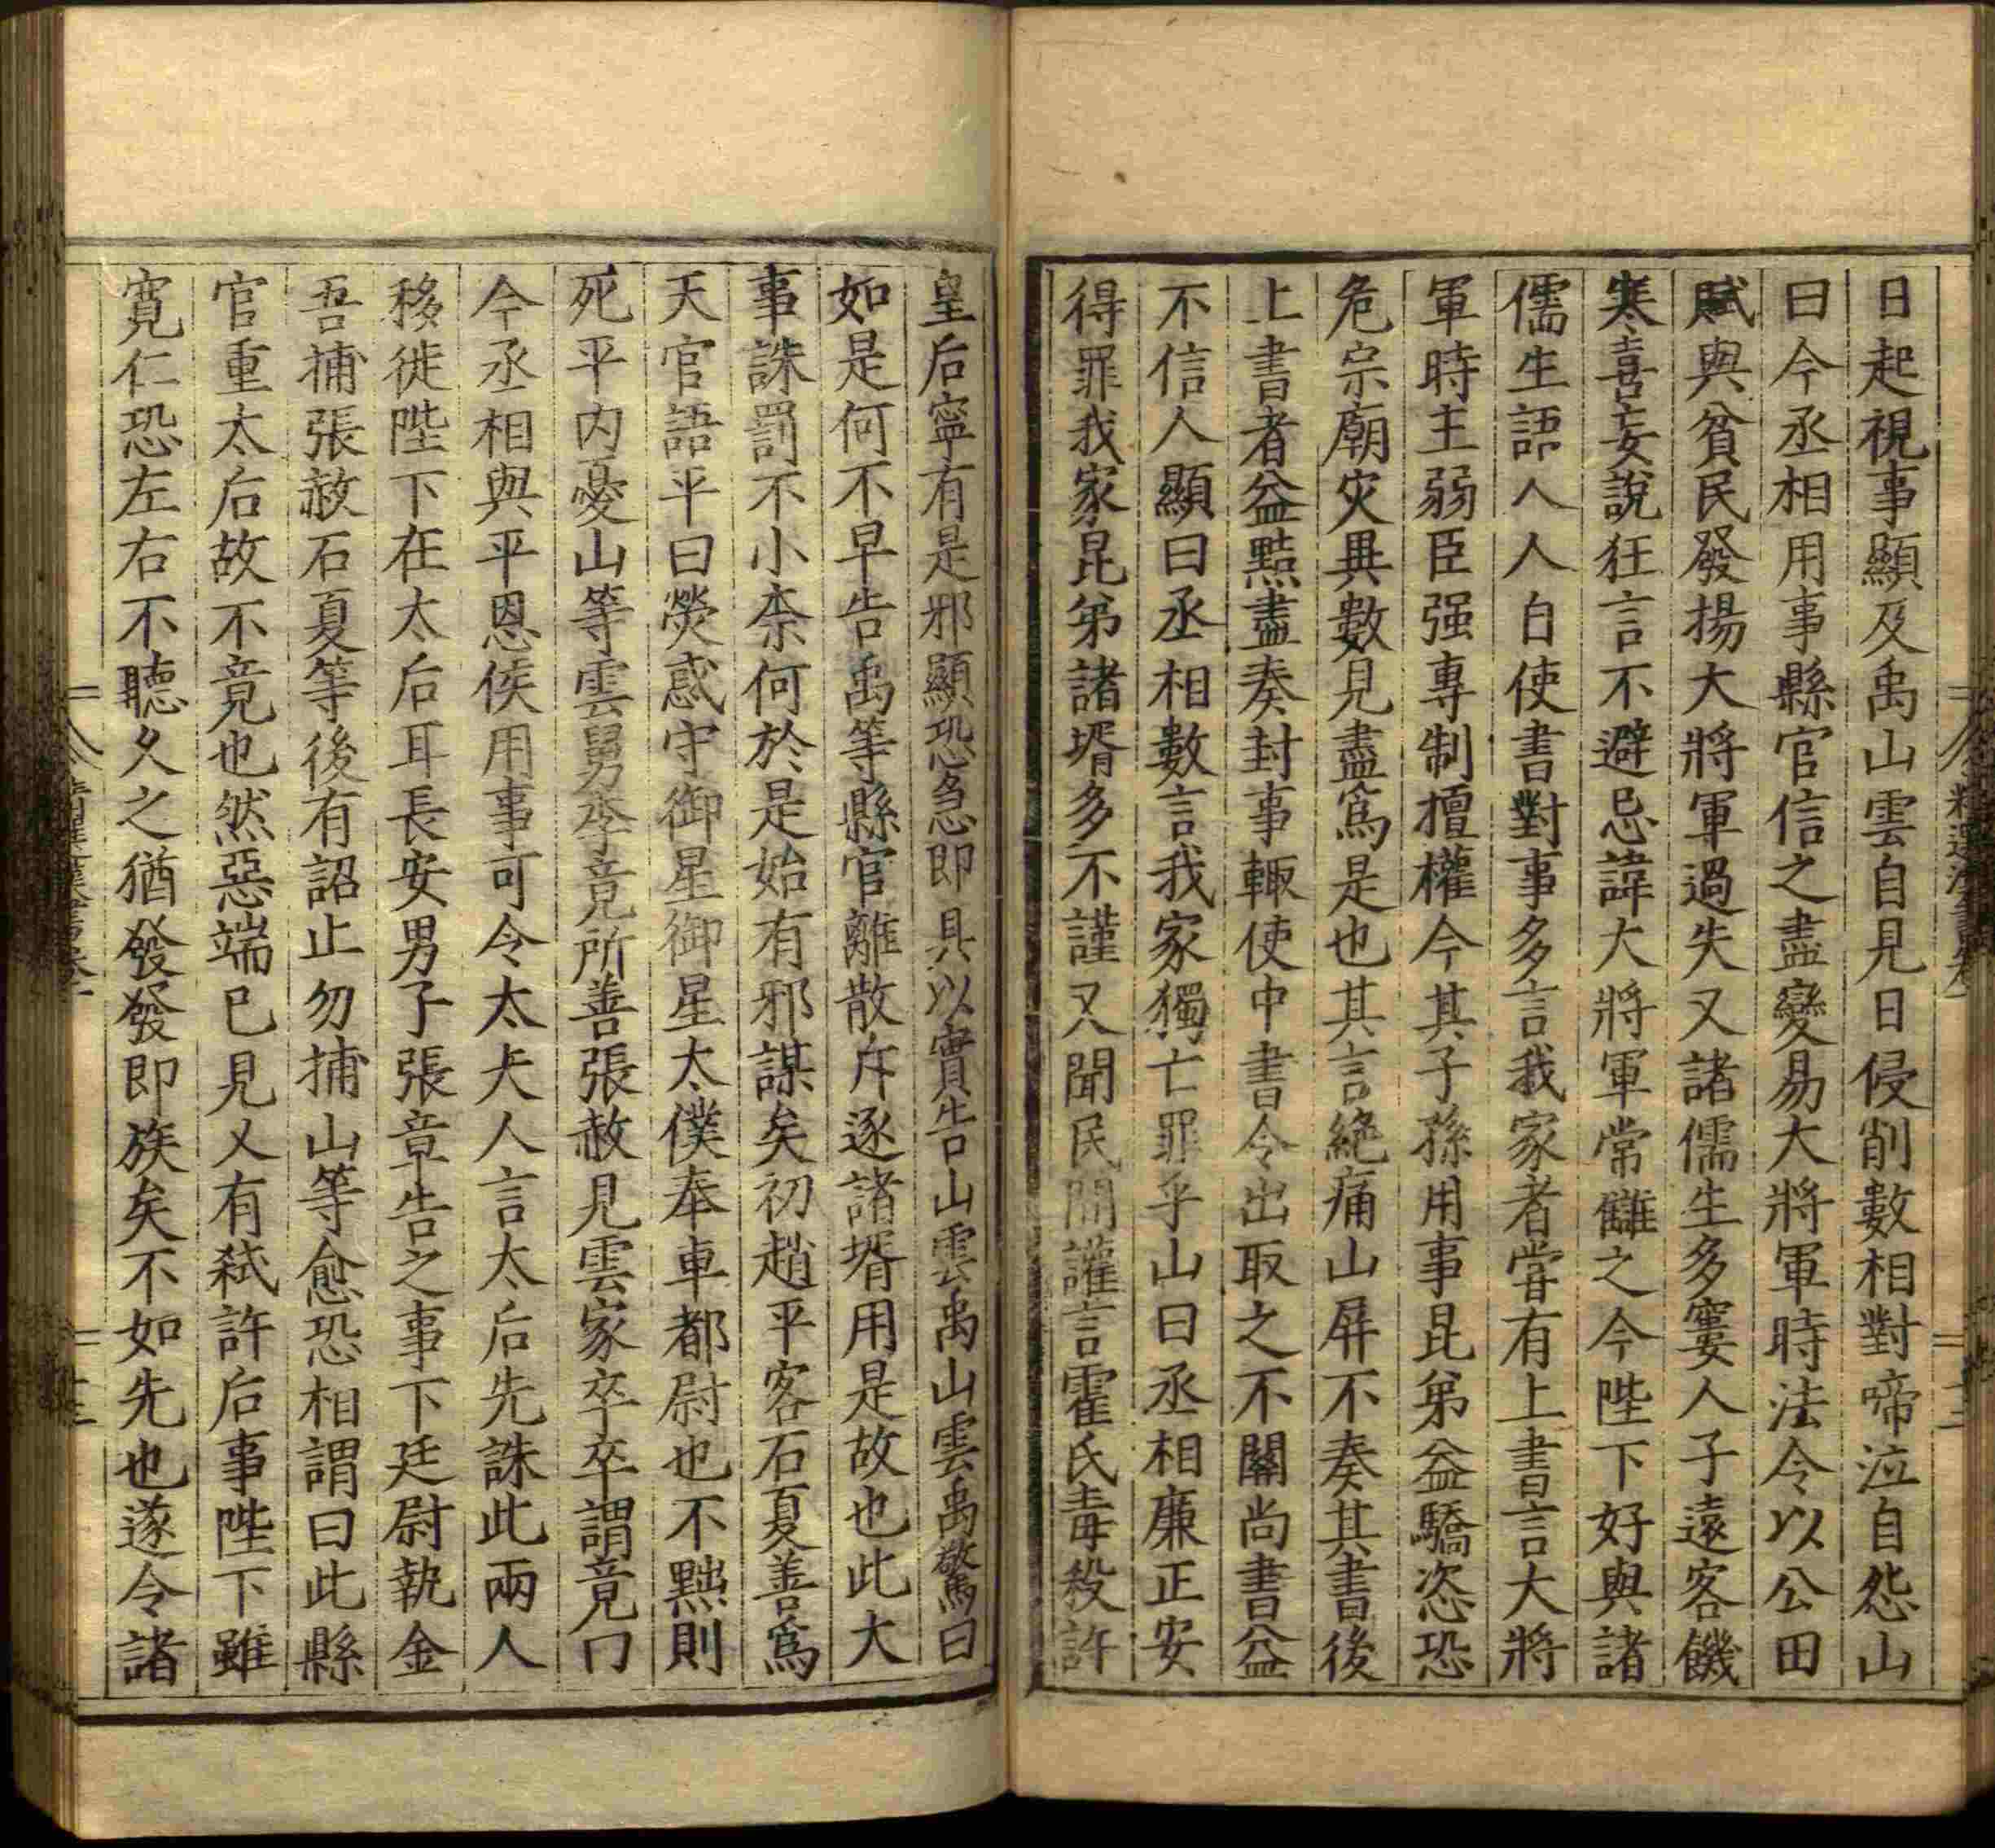 日起視事顯及禹山雲自見日侵削數相對啼泣自怨山
曰今丞相用事縣官信之盡變易大將軍時法令以公田
賦與貧民發揚大將軍過失又諸儒生多窶人子遠客饑
寒喜妄說狂言不避忌諱大將軍常讎之今陛下好與諸
儒生語人人自使書對事多言我家者嘗有上書言大將
軍時主弱臣强專制擅權今其子孫用事昆弟益驕恣恐
危宗廟灾異數見盡爲是也其言絶痛山屏不奏其書後
上書者益黠盡奏封事輙使中書令出取之不關尚書益
不信人顯曰丞相數言我家獨亡罪乎山曰丞相廉正安
得罪我家昆弟諸壻多不謹又聞民間讙言霍氏毒殺許
皇后寧有是邪顯恐急即具以實告山雲禹山雲禹驚曰
如是何不早告禹等縣官離散斥逐諸壻用是故也此大
事誅罰不小柰何於是始有邪謀矣初趙平客石夏善爲
天官語平曰熒惑守御星御星太僕奉車都尉也不黜則
死平内憂山等雲舅李竟所善張赦見雲家卒卒謂竟曰
今丞相與平恩侯用事可令太夫人言太后先誅此兩人
移徙陛下在太后耳長安男子張章告之事下廷尉執金
吾捕張赦石夏等後有詔止勿捕山等愈恐相謂曰此縣
官重太后故不竟也然惡端已見又有弒許后事陛下雖
寛仁恐左右不聽久之猶發發即族矣不如先也遂令諸